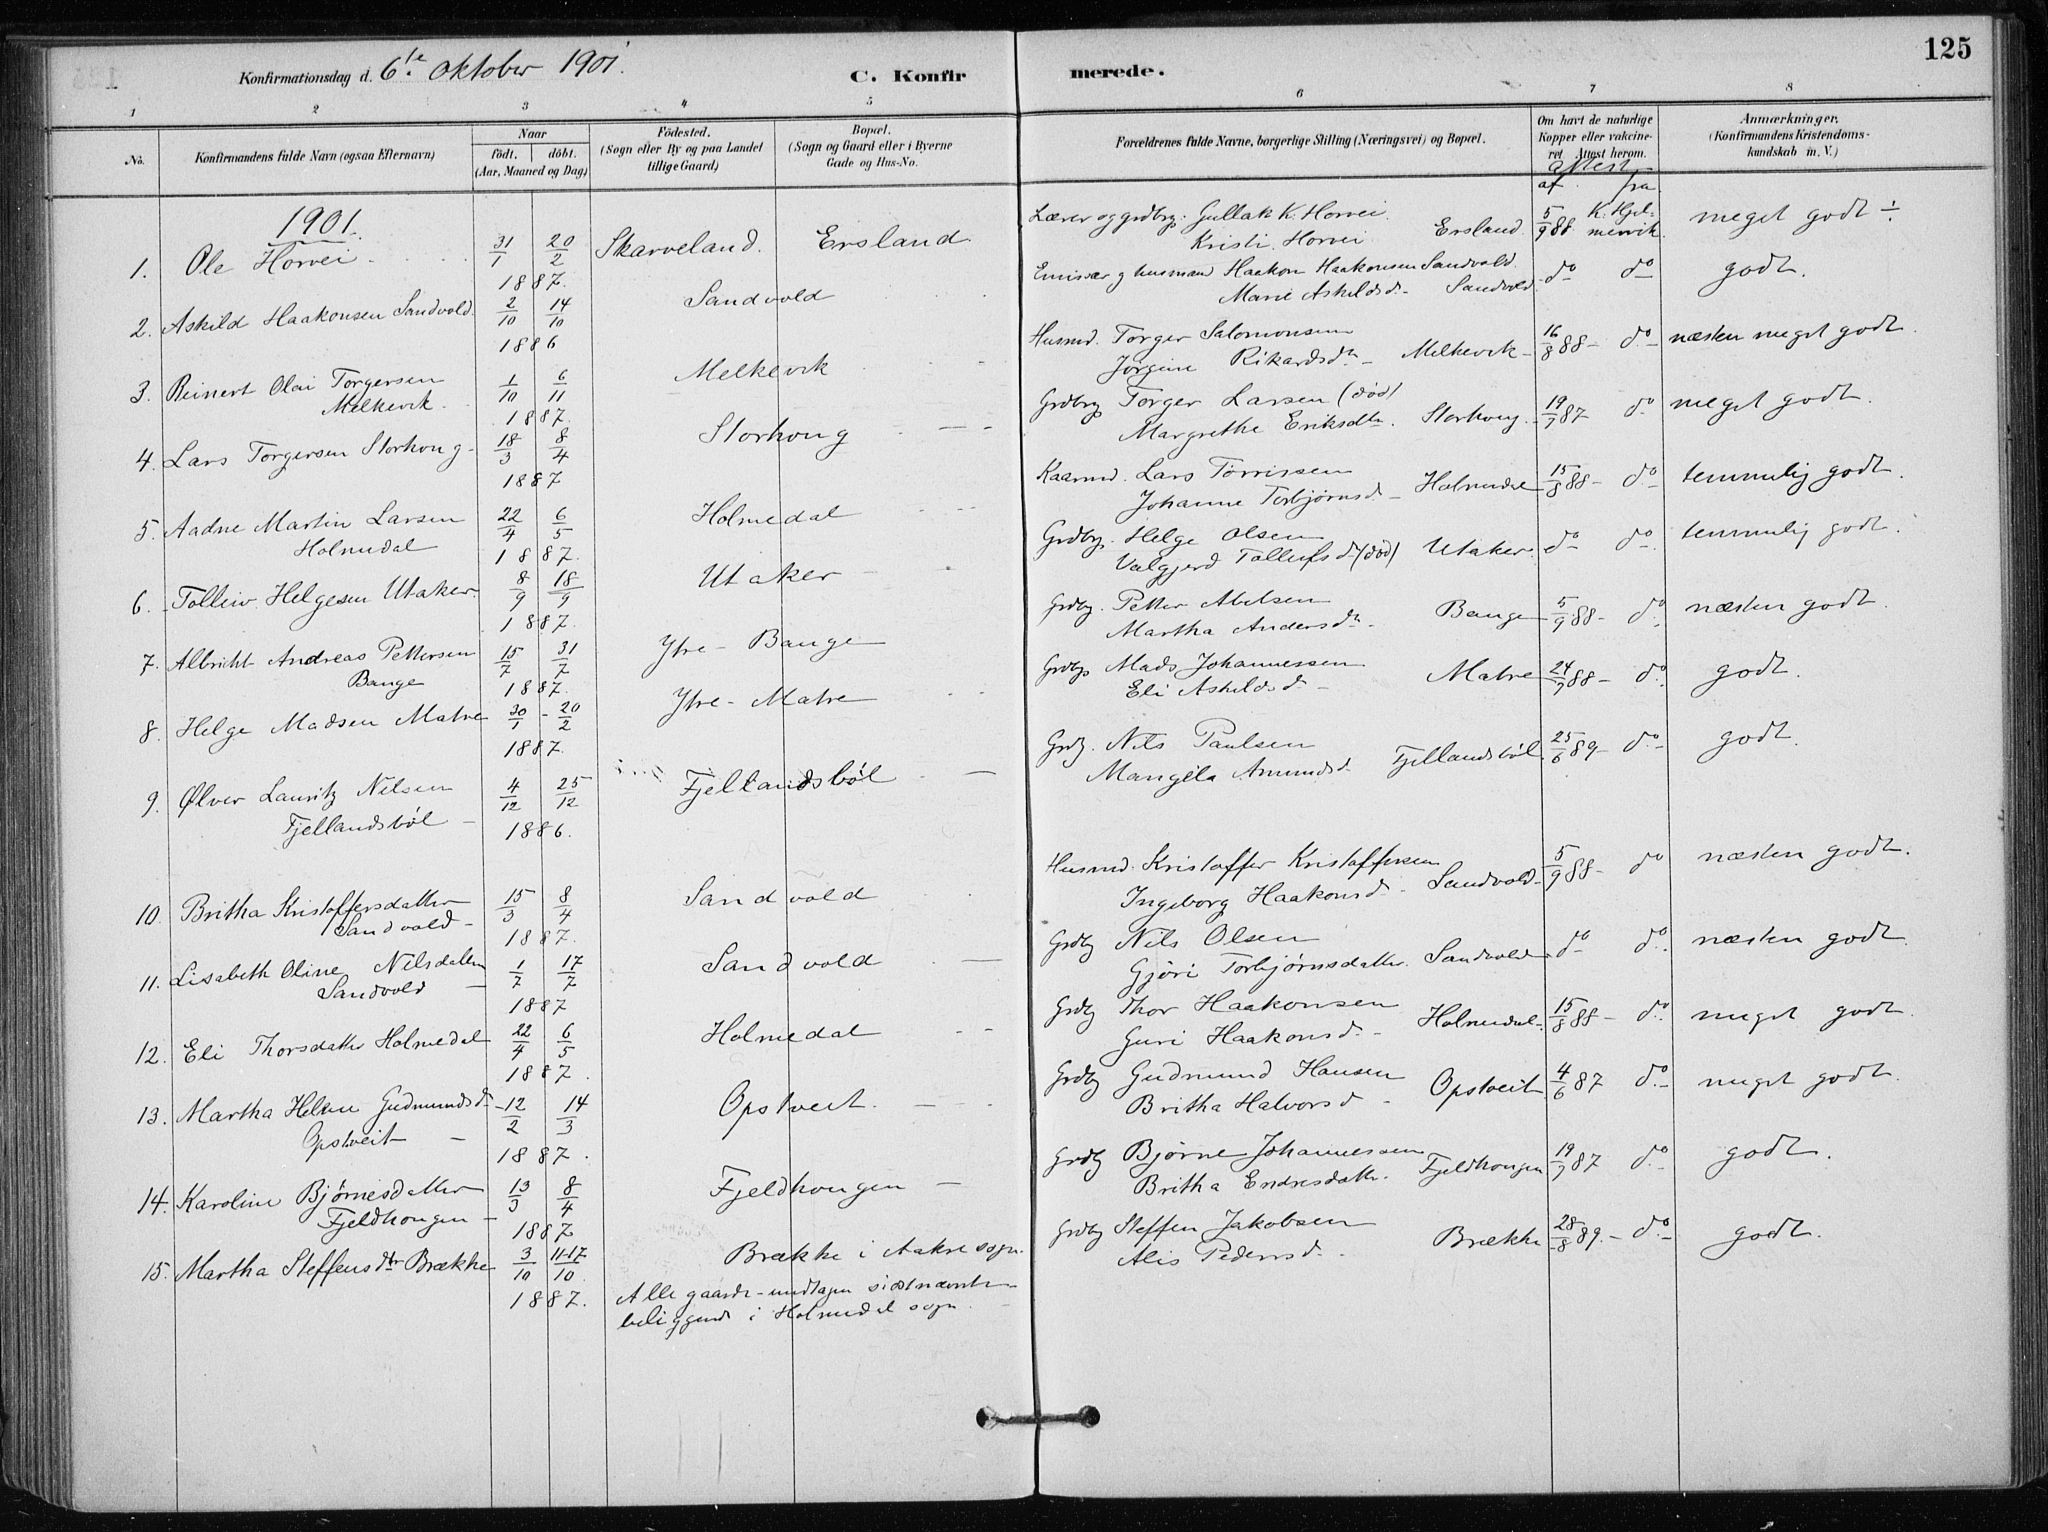 125
Konfirmationsdag d. 6te oktober 1901.
C. Konfirmerede.
1 2 3 4 5 6 7 8
No.
Konfirmandens fulde Navn (ogsaa Efternavn)
Naar
født. døbt.
(Aar, Maaned og Dag)
Fødested.
(Sogn eller By og paa Landet
tillige Gaard)
Bopæl.
(Sogn og Gaard eller i Byerne
Gade og Hus-No.
Forældrenes fulde Navne, borgerlige Stilling (Næringsvei) og Bopæl.
Om havt de naturlige
Kopper eller vakcine-
ret Attest herom.
Anmærkninger.
(Konfirmandens Kristendoms-
kundskab m. V.)
attest
af fra
1901.
1. Ole Horvei 31/1 20/2 Skarveland. Ersland Lærer og grdbrg. Gullak K. Horvei. 5/9 88 K. Hjel- meget godt
1887. Kristi Horvei Ersland. mervik.
2. Askild Haakonsen Sandvold. 2/10 14/10 Sandvold Emisær og husmand Haakon Haakonsen Sandvold. do do godt.
1886 Marie Askildsd. Sandvold
3. Reinert Olai Torgersen 1/10 6/11 Melkevik Husmd. Torger Salomonsen 16/8 88 - do næsten meget godt.
Melkevik. 1887. Jørgine Rikardsdtr - Melkevik -
4. Lars Torgersen Storhoug - 18/3 8/4 Storhoug Grdbrg Torger Larsen (død) 19/7 87 do meget godt.
1887 Margrethe Eriksdtr. Storhoug.
5. Aadne Martin Larsen 22/4 6/5 Holmedal Kaarmd. Lars Tørrissen 15/8 88 - do temmelig godt.
Holmedal 1887. Johanne Torbjørnsd. - Holmedal
6. Tolleiv Helgesen Utaker 8/9 18/9 Utaker Grdbg. Helge Olsen do do temmelig godt.
1887. Valgjerd Tollefsd (død) Utaker.
7. Albricht Andreas Pettersen 15/7 31/7 Ytre - Bauge Grdbg. Petter Abelsen 5/9 88 - do næsten godt.
Bauge 1887. Martha Andersdtr. Bauge
8. Helge Madsen Matre 30/1 - 20/2 Ytre - Matre Grdbg Mads Johannessen 24/7 88 - do godt.
1887. Eli Askildsd - Matre
9. Ølver Lauritz Nilsen 4/12 25/12 Fjellandsbøl Grdbg. Nils Paulsen 25/6 89 - do godt.
Fjellandsbøl - 1886. Mangela Amundsd. Fjellandsbøl
10. Britha Kristoffersdatter 15/3 8/4 Sandvold Husmd. Kristoffer Kristoffersen 5/9 88 - do næsten godt.
Sandvold - 1887. Ingeborg Haakonsd. Sandvold -
11. Lisabeth Oline Nilsdatter 1/7 17/7 Sandvold Grdbg Nils Olsen do do næsten godt.
Sandvold - 1887 Gjøri Torbjørnsdatter. Sandvold
12. Eli Thorsdatter Holmedal 22/4 6/5 Holmedal Grdbg Thor Haakonsen 15/8 88 - do meget godt.
1887. Guri Haakonsd. - Holmedal -
13. Martha Gudmundsd. 12/2 14/3 Opstveit. Grdbg Gudmund Hansen 4/6 87 do meget godt.
Opstveit - 1887. Britha Halvorsd - Opstveit
14. Karoline Bjørnesdatter 13/3 8/4 Fjeldhougen - Grdbg Bjørne Johannessen 19/7 87 do godt.
Fjeldhougen - 1887 Britha Endresdatter. Fjeldhougen
15. Martha Steffensdtr Brække 3/10 11-17/10. Brække i Aakre sogn. Grdbg Steffen Jakobsen 28/8 89. - do godt.
1887. Alis Pedersd. Brække
Alle gaarde - undtagen sidstnævnte
beliggende i Holmedal sogn.